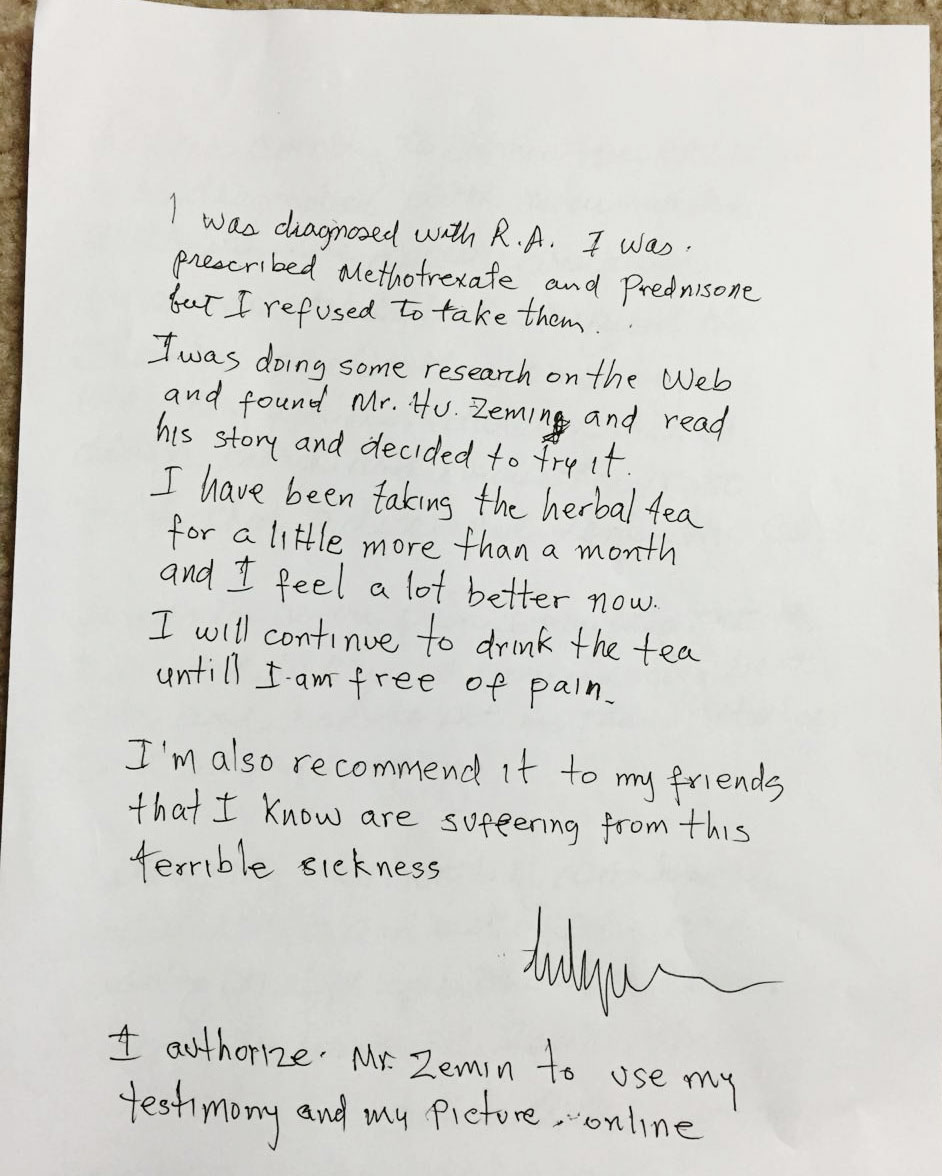 I was diagnosed with R.A. I was.
prescribed Methotrexate and Prednisone
but I refused to take them.
I was doing some research on the Web
and found Mr. Hu. Zeming and read
his story and decided to try it.
I have been taking the herbal tea
for a little more than a month
and I feel a lot better now.
I will continue to drink the tea
untill I am free of pain.
I'm also recommend it to my friends
that I know are suffering from this
terrible sickness
I authorize. Mr. Zemin to use my
testimony and my picture online